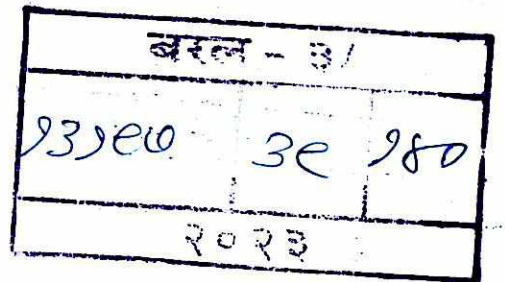 बरल - ३/
१३१९७ ३९ १४०
२०२३